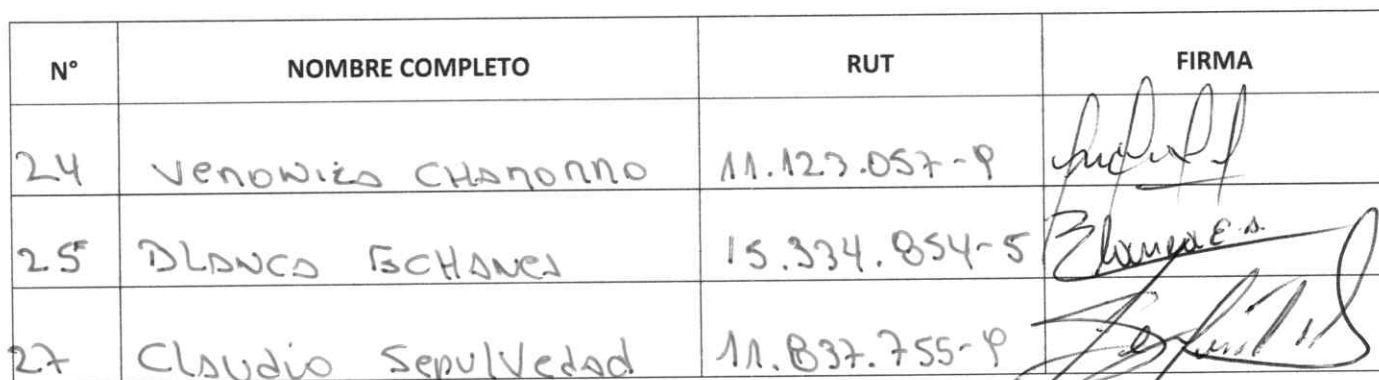 N° NOMBRE COMPLETO RUT FIRMA
24 Veronica CHamorro 11.123.057-9
25 BLANCA ECHANEZ 15.334.854-5 Blanca E.
27 Claudio Sepulveda 11.837.755-9